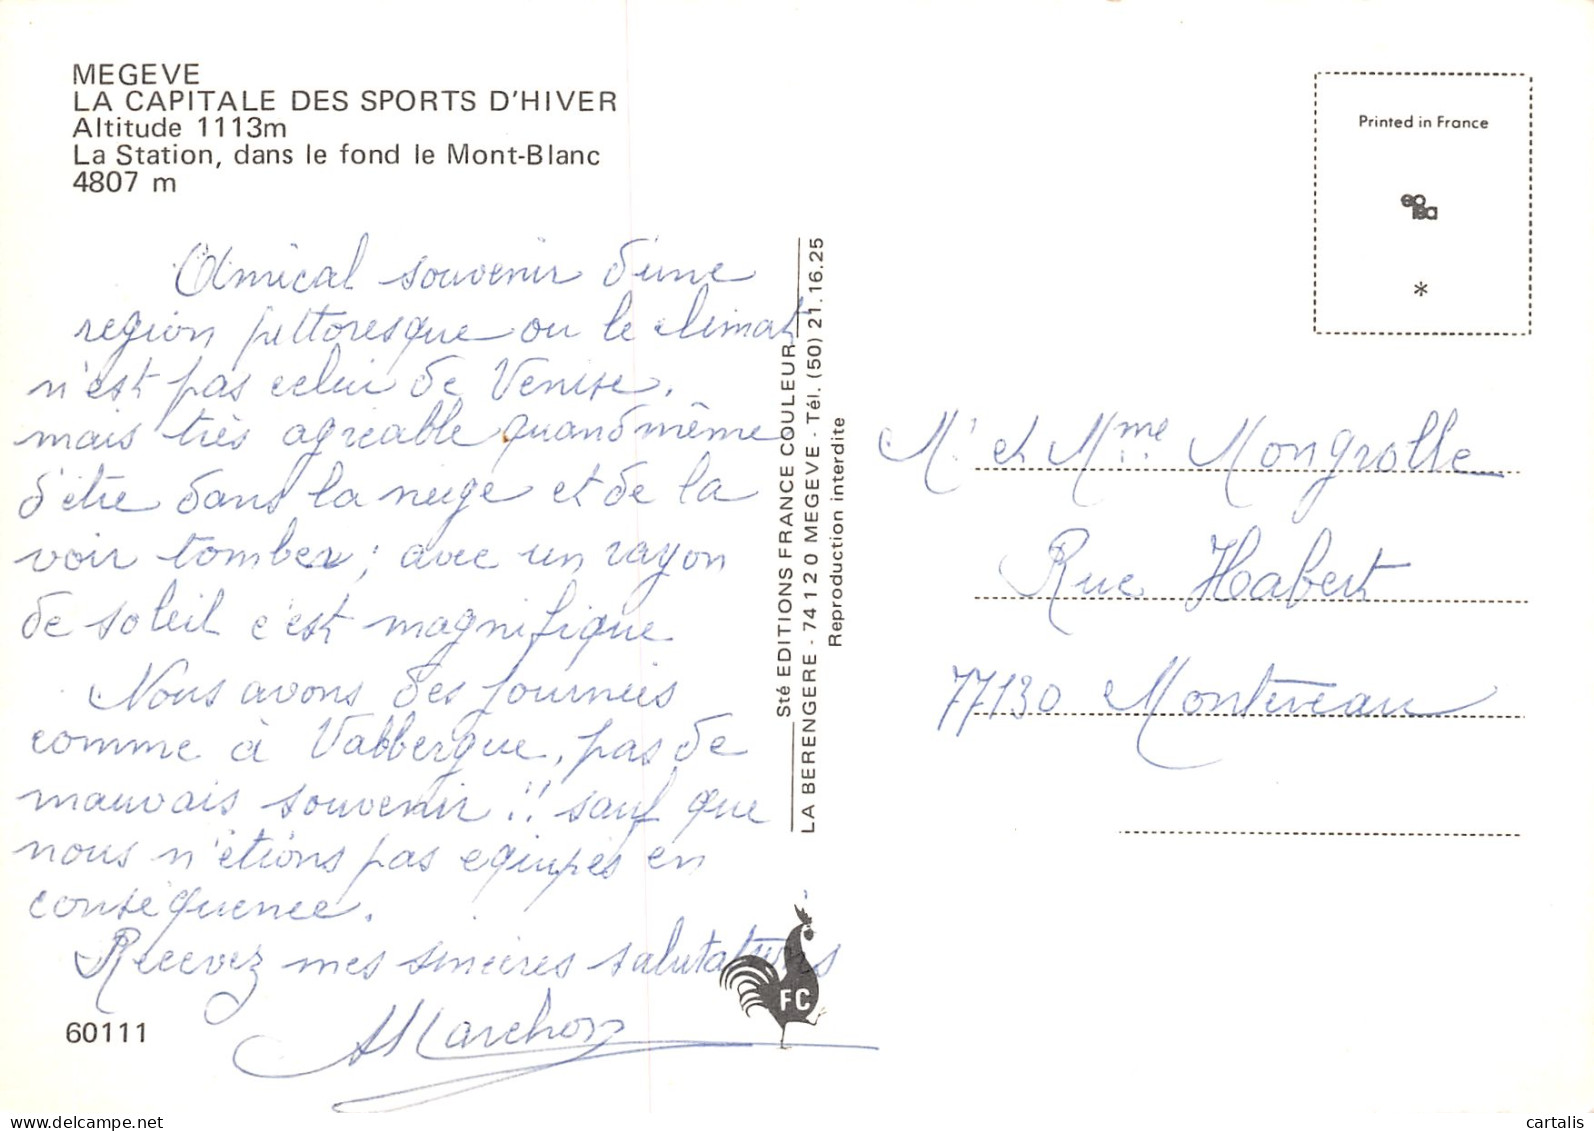 MEGEVE
LA CAPITALE DES SPORTS D'HIVER
Altitude 1113m
La Station, dans le fond le Mont-Blanc
4807 m
Amical souvenir d'une
region pittoresque ou le climat
n'est pas celui de Venise.
mais très agreable quand même
d'être dans la neige et de la
voir tomber ; avec un rayon
de soleil c'est magnifique
Nous avons des journées
comme à Valbergue, pas de
mauvais souvenir !! sauf que
nous n'étions pas equipés en
conséquence.
Recevez mes sinceres salutations
Marchon
60111
Sté EDITIONS FRANCE COULEUR
LA BERENGERE - 74120 MEGEVE - Tél. (50) 21.16.25
Reproduction interdite
FC
Printed in France
*
Mr et Mme Mongrolle
Rue Habert
77130 Montereau
delcampe.net
cartalis